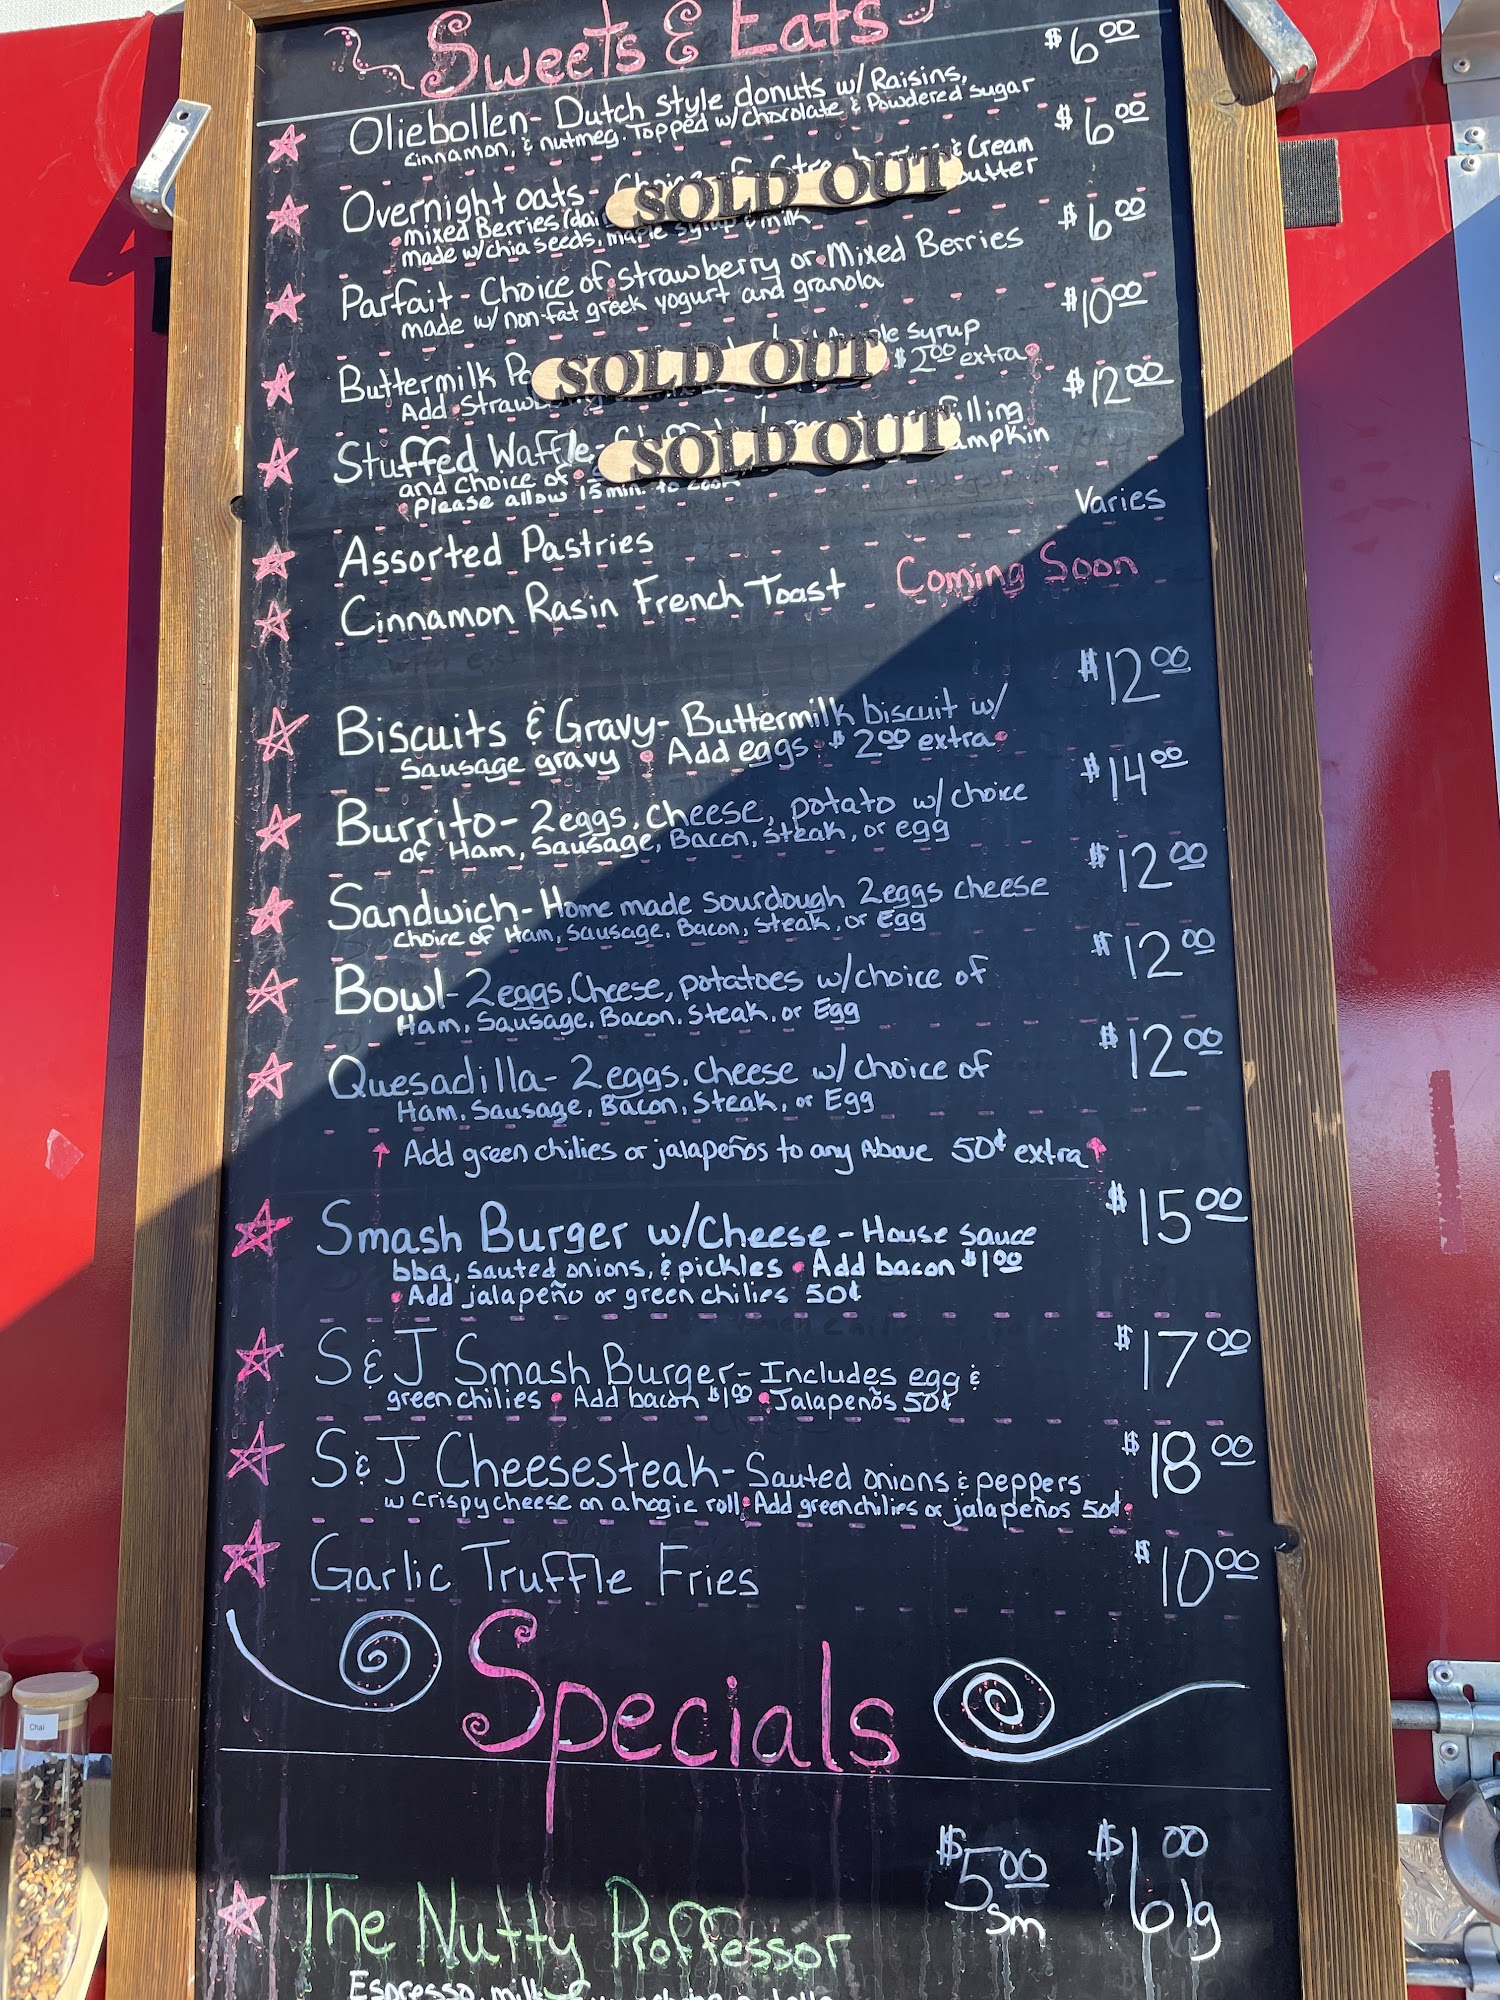 Sweets & Eats
Oliebollen- Dutch style donuts w/ Raisins, $6.00
cinnamon, & nutmeg. Topped w/ chocolate & Powdered sugar
Overnight oats - SOLD OUT & Cream $6.00
•mixed Berries butter
made w/ chia seeds, maple syrup & milk
Parfait - Choice of •strawberry or •Mixed Berries $6.00
made w/ non-fat greek yogurt and granola
Buttermilk SOLD OUT syrup $10.00
Add •Straw $2.00 extra•
Stuffed Waffle- SOLD OUT filling $12.00
and choice of • pumpkin
•Please allow 15 min. to cook
Assorted Pastries Varies
Cinnamon Rasin French Toast - Coming Soon
Biscuits & Gravy- Buttermilk biscuit w/ $12.00
sausage gravy • Add eggs • $2.00 extra•
Burrito- 2eggs, cheese, potato w/ choice $14.00
of Ham, Sausage, Bacon, Steak, or egg
Sandwich- Home made sourdough 2eggs cheese $12.00
choice of Ham, Sausage, Bacon, Steak, or Egg
Bowl- 2eggs, Cheese, potatoes w/choice of $12.00
Ham, Sausage, Bacon, Steak, or Egg
Quesadilla- 2eggs, cheese w/ choice of $12.00
Ham, Sausage, Bacon, Steak, or Egg
↑ Add green chilies or jalapeños to any Above 50¢ extra ↑
Smash Burger w/Cheese - House sauce $15.00
bbq, sauted onions, & pickles • Add bacon $1.00
•Add jalapeño or green chilies 50¢
S&J Smash Burger- Includes egg & $17.00
green chilies • Add bacon $1.00 •Jalapeños 50¢
S&J Cheesesteak- Sauted onions & peppers $18.00
w crispy cheese on a hogie roll•Add green chilies or jalapeños 50¢•
Garlic Truffle Fries $10.00
Specials
$5.00 sm $6.00 lg
The Nutty Proffessor
Espresso, milk
Chai